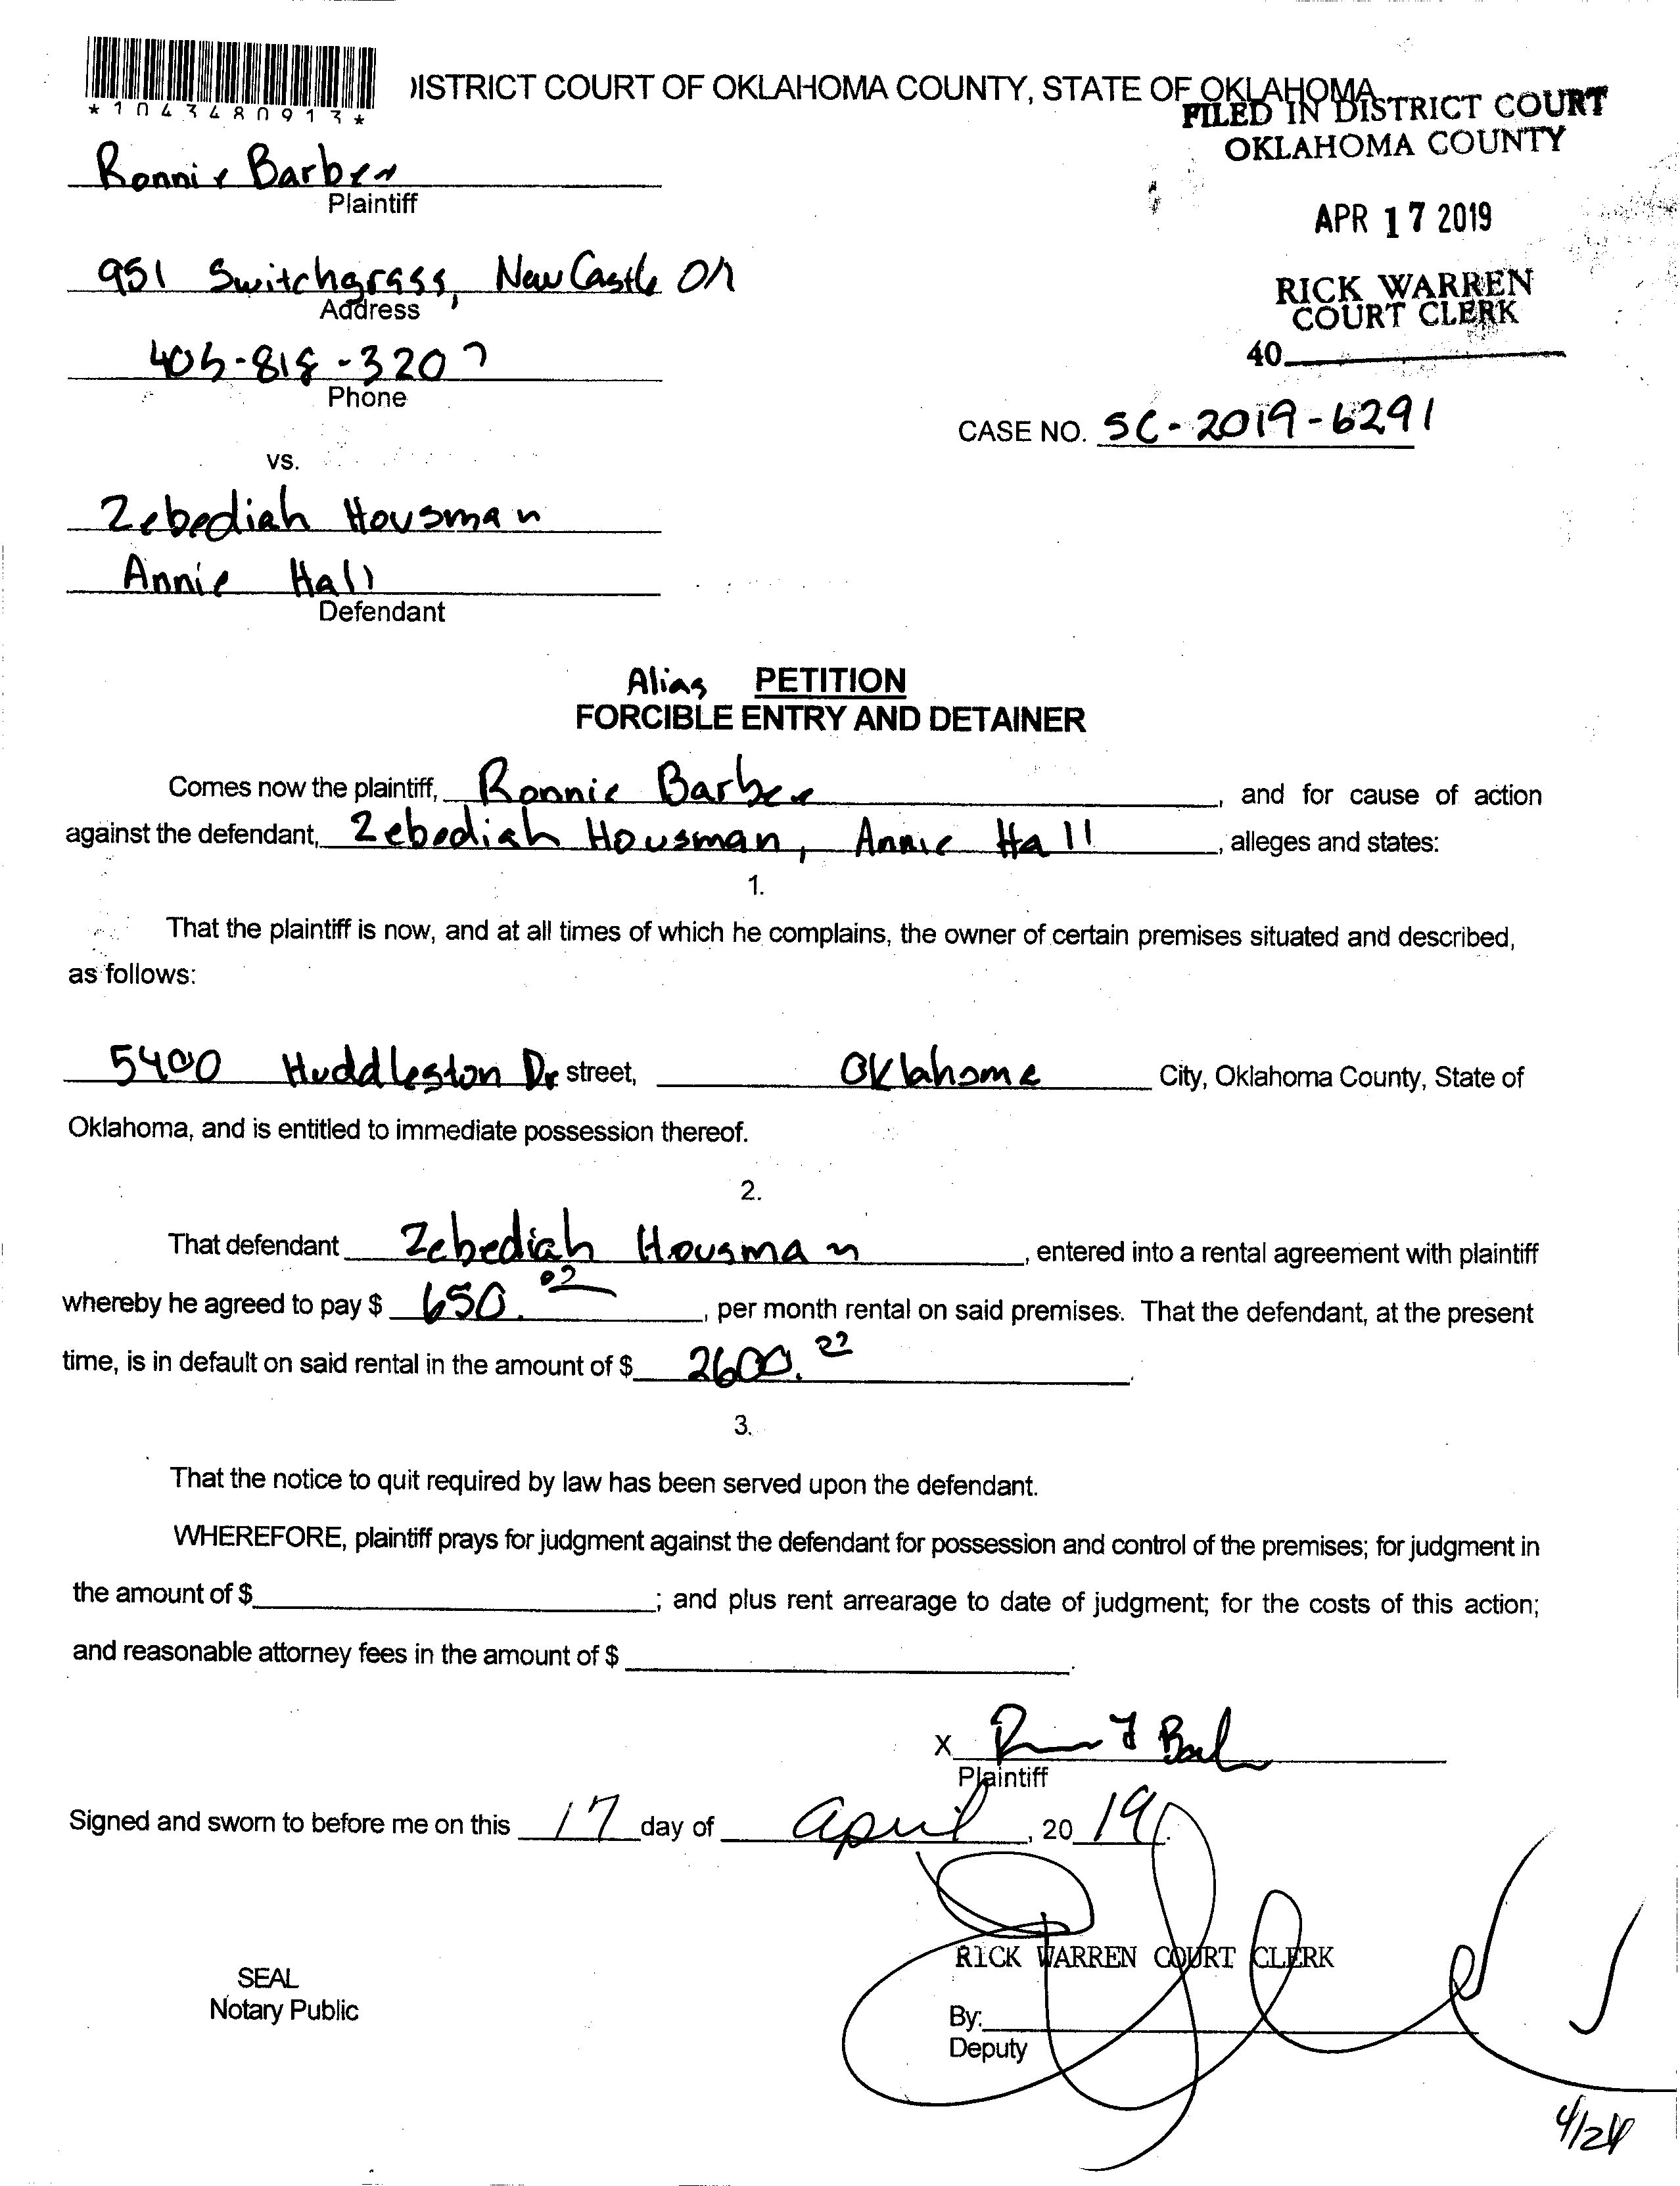 *1043480913*
DISTRICT COURT OF OKLAHOMA COUNTY, STATE OF OKLAHOMA
FILED IN DISTRICT COURT
OKLAHOMA COUNTY
APR 17 2019
RICK WARREN
COURT CLERK
40
Ronnie Barber
Plaintiff
951 Switchgrass, NewCastle OK
Address
405-818-3207
Phone
CASE NO. SC-2019-6291
vs.
Zebediah Housman
Annie Hall
Defendant
Alias PETITION
FORCIBLE ENTRY AND DETAINER
Comes now the plaintiff, Ronnie Barber, and for cause of action
against the defendant, Zebediah Housman, Annie Hall, alleges and states:
1.
That the plaintiff is now, and at all times of which he complains, the owner of certain premises situated and described,
as follows:
5400 Huddleston Dr street, Oklahoma City, Oklahoma County, State of
Oklahoma, and is entitled to immediate possession thereof.
2.
That defendant Zebediah Housman, entered into a rental agreement with plaintiff
whereby he agreed to pay $ 650.00, per month rental on said premises. That the defendant, at the present
time, is in default on said rental in the amount of $ 2600.
3.
That the notice to quit required by law has been served upon the defendant.
WHEREFORE, plaintiff prays for judgment against the defendant for possession and control of the premises; for judgment in
the amount of $ ; and plus rent arrearage to date of judgment; for the costs of this action;
and reasonable attorney fees in the amount of $ .
X
Plaintiff
Signed and sworn to before me on this 17 day of April, 2019.
SEAL
Notary Public
RICK WARREN COURT CLERK
By:
Deputy
4/24